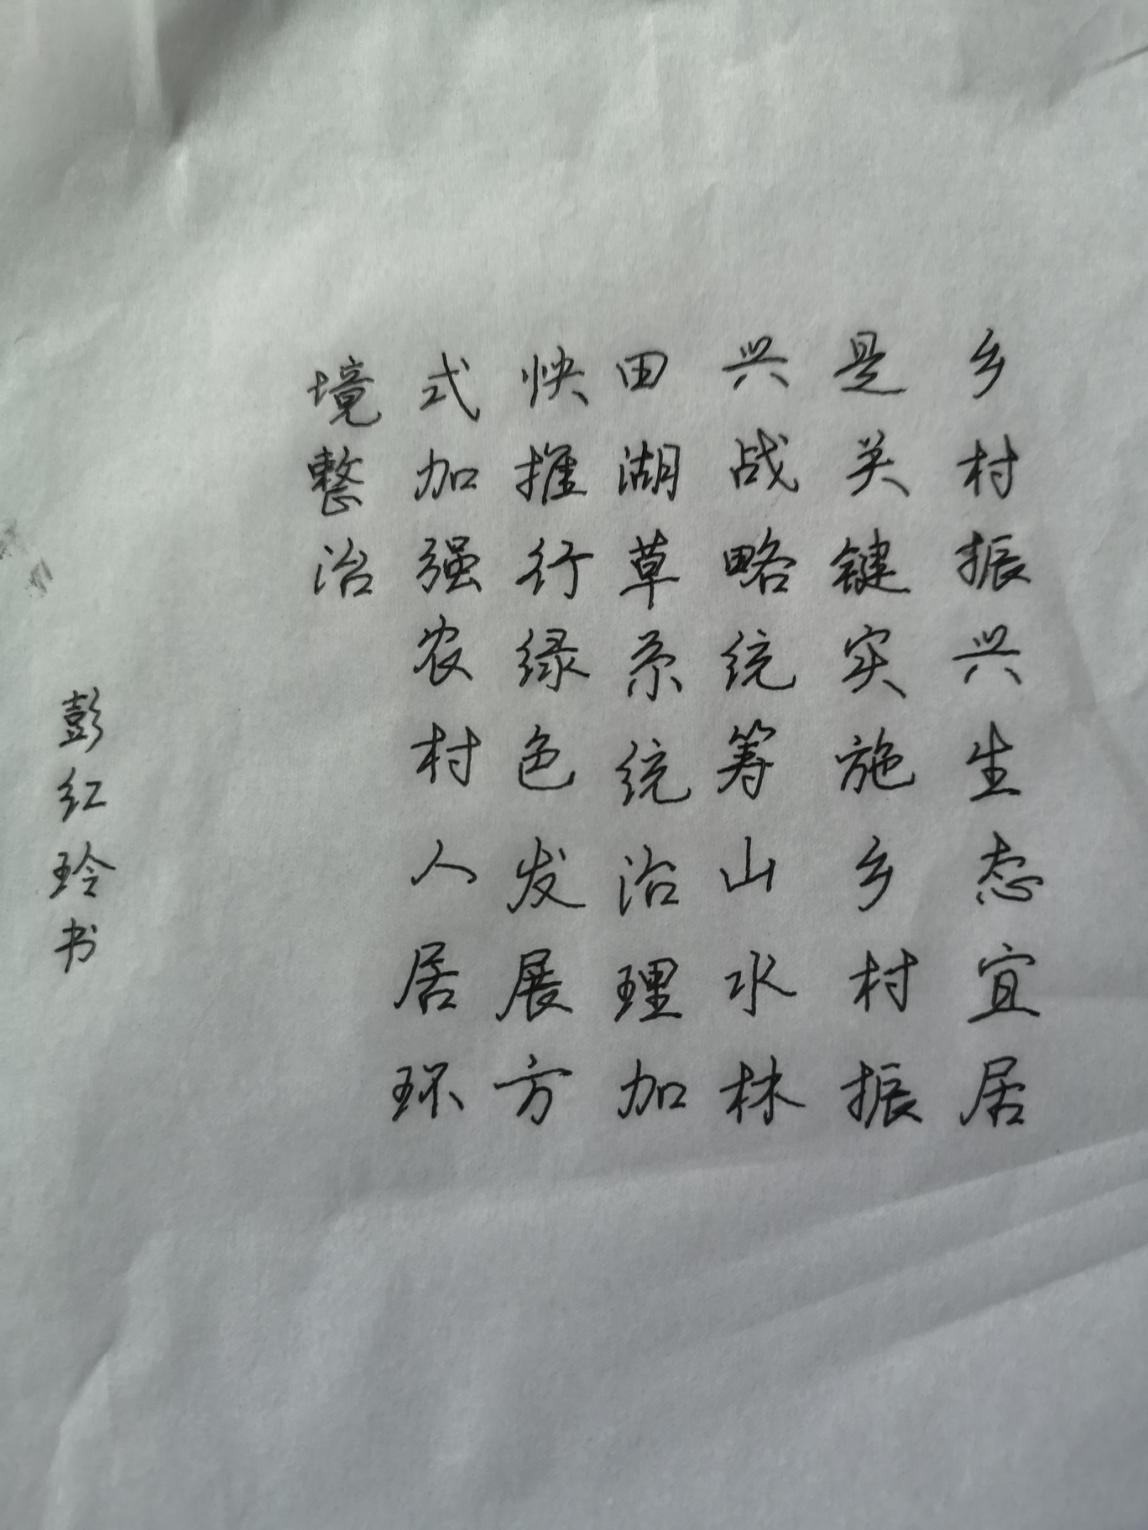 乡村振兴生态宜居
是关键实施乡村振
兴战略统筹山水林
田湖草系统治理加
快推行绿色发展方
式加强农村人居环
境整治
彭红玲书